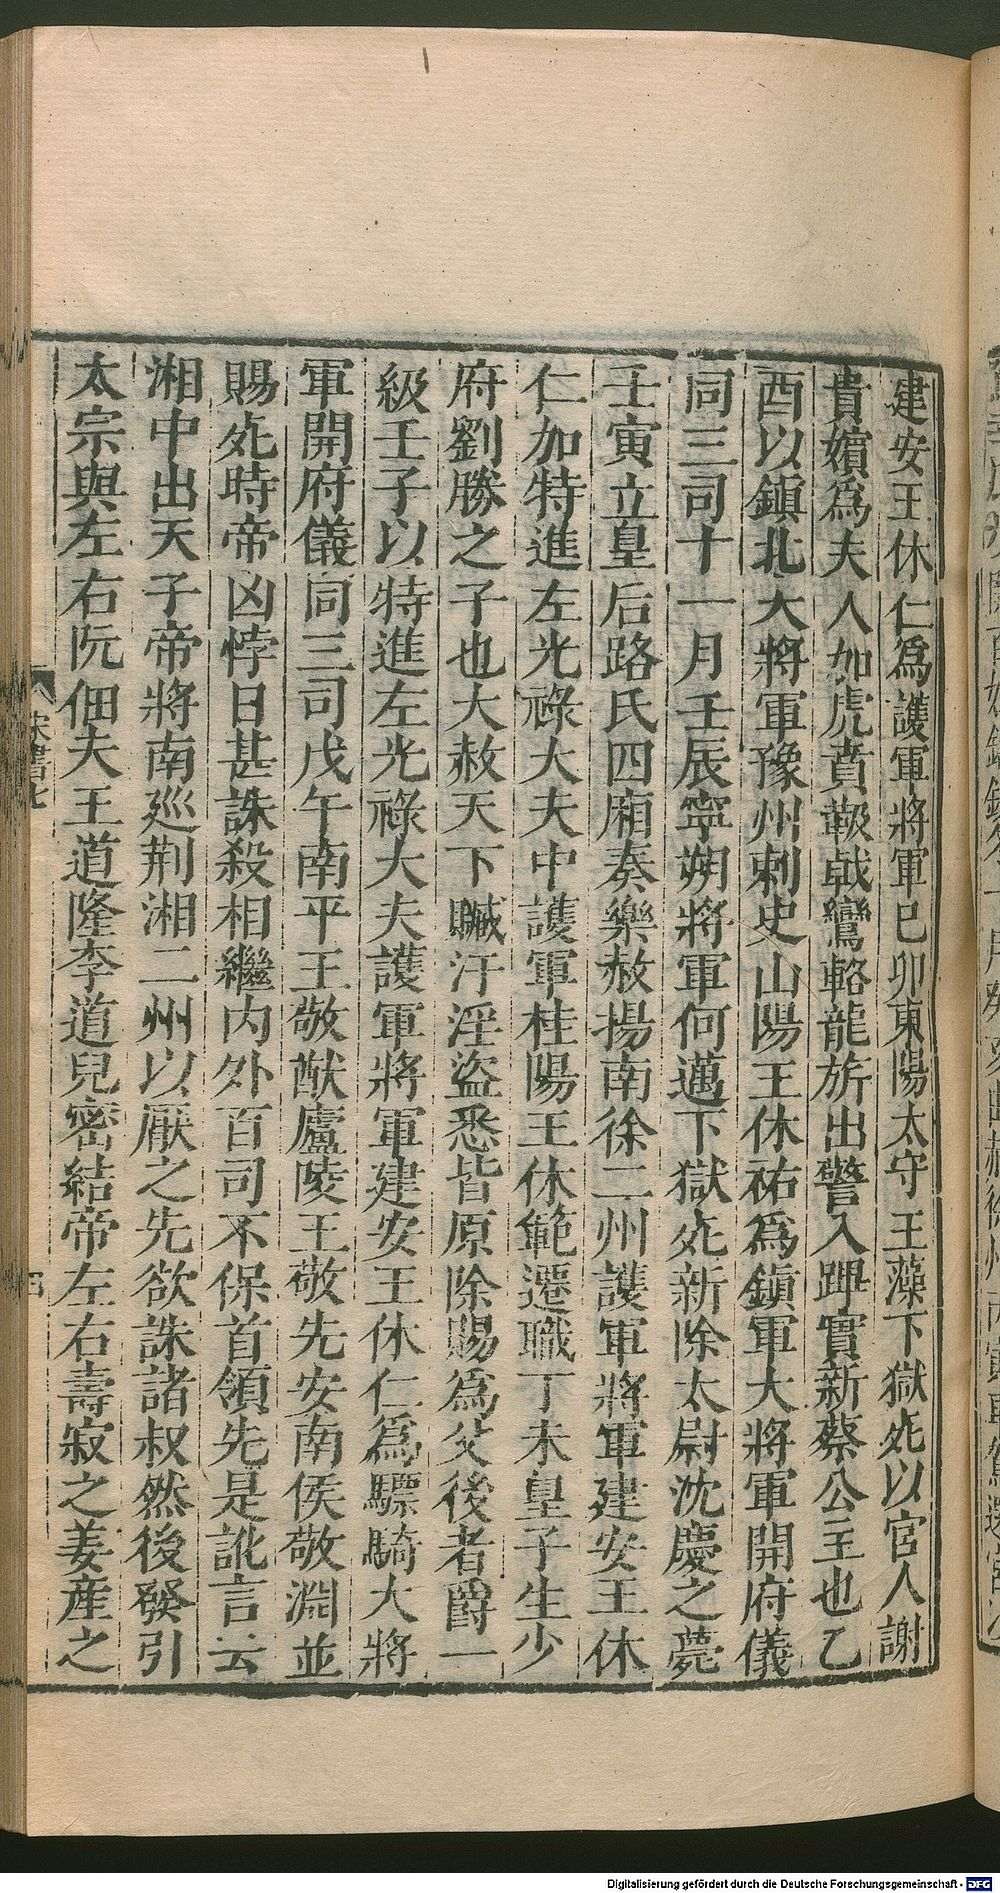 建安王休仁爲護軍將軍巳卯東陽太守王藻下獄死以宮人謝
貴嬪爲夫人加虎賁鞁戟鸞輅龍旂出警入蹕實新蔡公主也乙
酉以鎮北大將軍豫州刺史山陽王休祐爲鎮軍大將軍開府儀
同三司十一月壬辰寧朔將軍何邁下獄死新除太尉沈慶之薨
壬寅立皇后路氏四廂奏樂赦揚南徐二州護軍將軍建安王休
仁加特進左光祿大夫中護軍桂陽王休範遷職丁未皇子生少
府劉勝之子也大赦天下贓汙淫盜悉皆原除賜爲父後者爵一
級壬子以特進左光祿大夫護軍將軍建安王休仁爲驃騎大將
軍開府儀同三司戊午南平王敬猷廬陵王敬先安南侯敬淵並
賜死時帝凶悖日甚誅殺相繼內外百司不保首領先是訛言云
湘中出天子帝將南巡荆湘二州以厭之先欲誅諸叔然後發引
太宗與左右阮佃夫王道隆李道兒密結帝左右壽寂之姜產之
宋書七
四
Digitalisierung gefördert durch die Deutsche Forschungsgemeinschaft - DFG